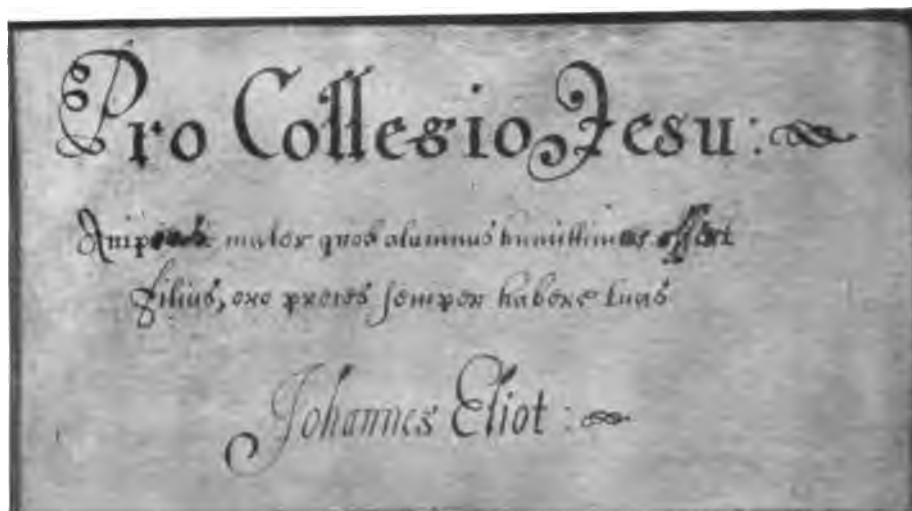 Pro Collegio Jesu:
mater quod alumnus humillimus offert
filius, oro preces semper habere tuas
Johannes Eliot: